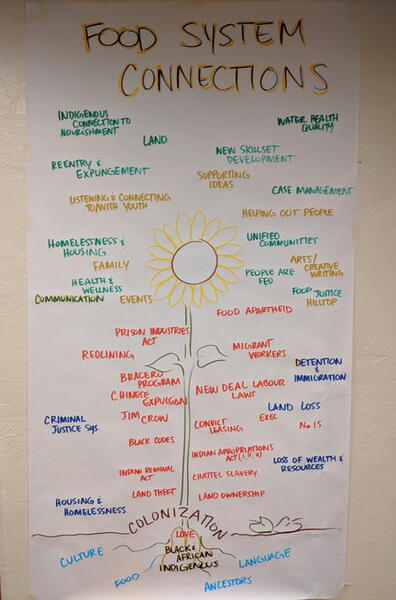 FOOD SYSTEM
CONNECTIONS
INDIGENOUS
CONNECTION TO
NOURISHMENT
WATER HEALTH
QUALITY
LAND
NEW SKILLSET
DEVELOPMENT
REENTRY &
EXPUNGEMENT
SUPPORTING
IDEAS
CASE MANAGEMENT
LISTENING & CONNECTING
TO/WITH YOUTH
HELPING OUT PEOPLE
HOMELESSNESS &
HOUSING
UNIFIED
COMMUNITIES
FAMILY
ARTS/
CREATIVE
WRITING
HEALTH &
WELLNESS
PEOPLE ARE
FED
COMMUNICATION
EVENTS
FOOD JUSTICE
HILLTOP
FOOD APARTHEID
PRISON INDUSTRIES
ACT
REDLINING
MIGRANT
WORKERS
DETENTION &
IMMIGRATION
BRACERO
PROGRAM
CHINESE
EXPULSION
NEW DEAL LABOUR
LAWS
JIM
CROW
LAND LOSS
CRIMINAL
JUSTICE SYS.
CONVICT
LEASING
EXEC
No 15
BLACK CODES
INDIAN APROPRIATIONS
ACT (I, II, II)
LOSS OF WEALTH &
RESOURCES
INDIAN REMOVAL
ACT
CHATTEL SLAVERY
LAND THEFT
LAND OWNERSHIP
HOUSING &
HOMELESSNESS
COLONIZATION
LOVE
BLACK &
AFRICAN
INDIGENOUS
CULTURE
LANGUAGE
FOOD
ANCESTORS